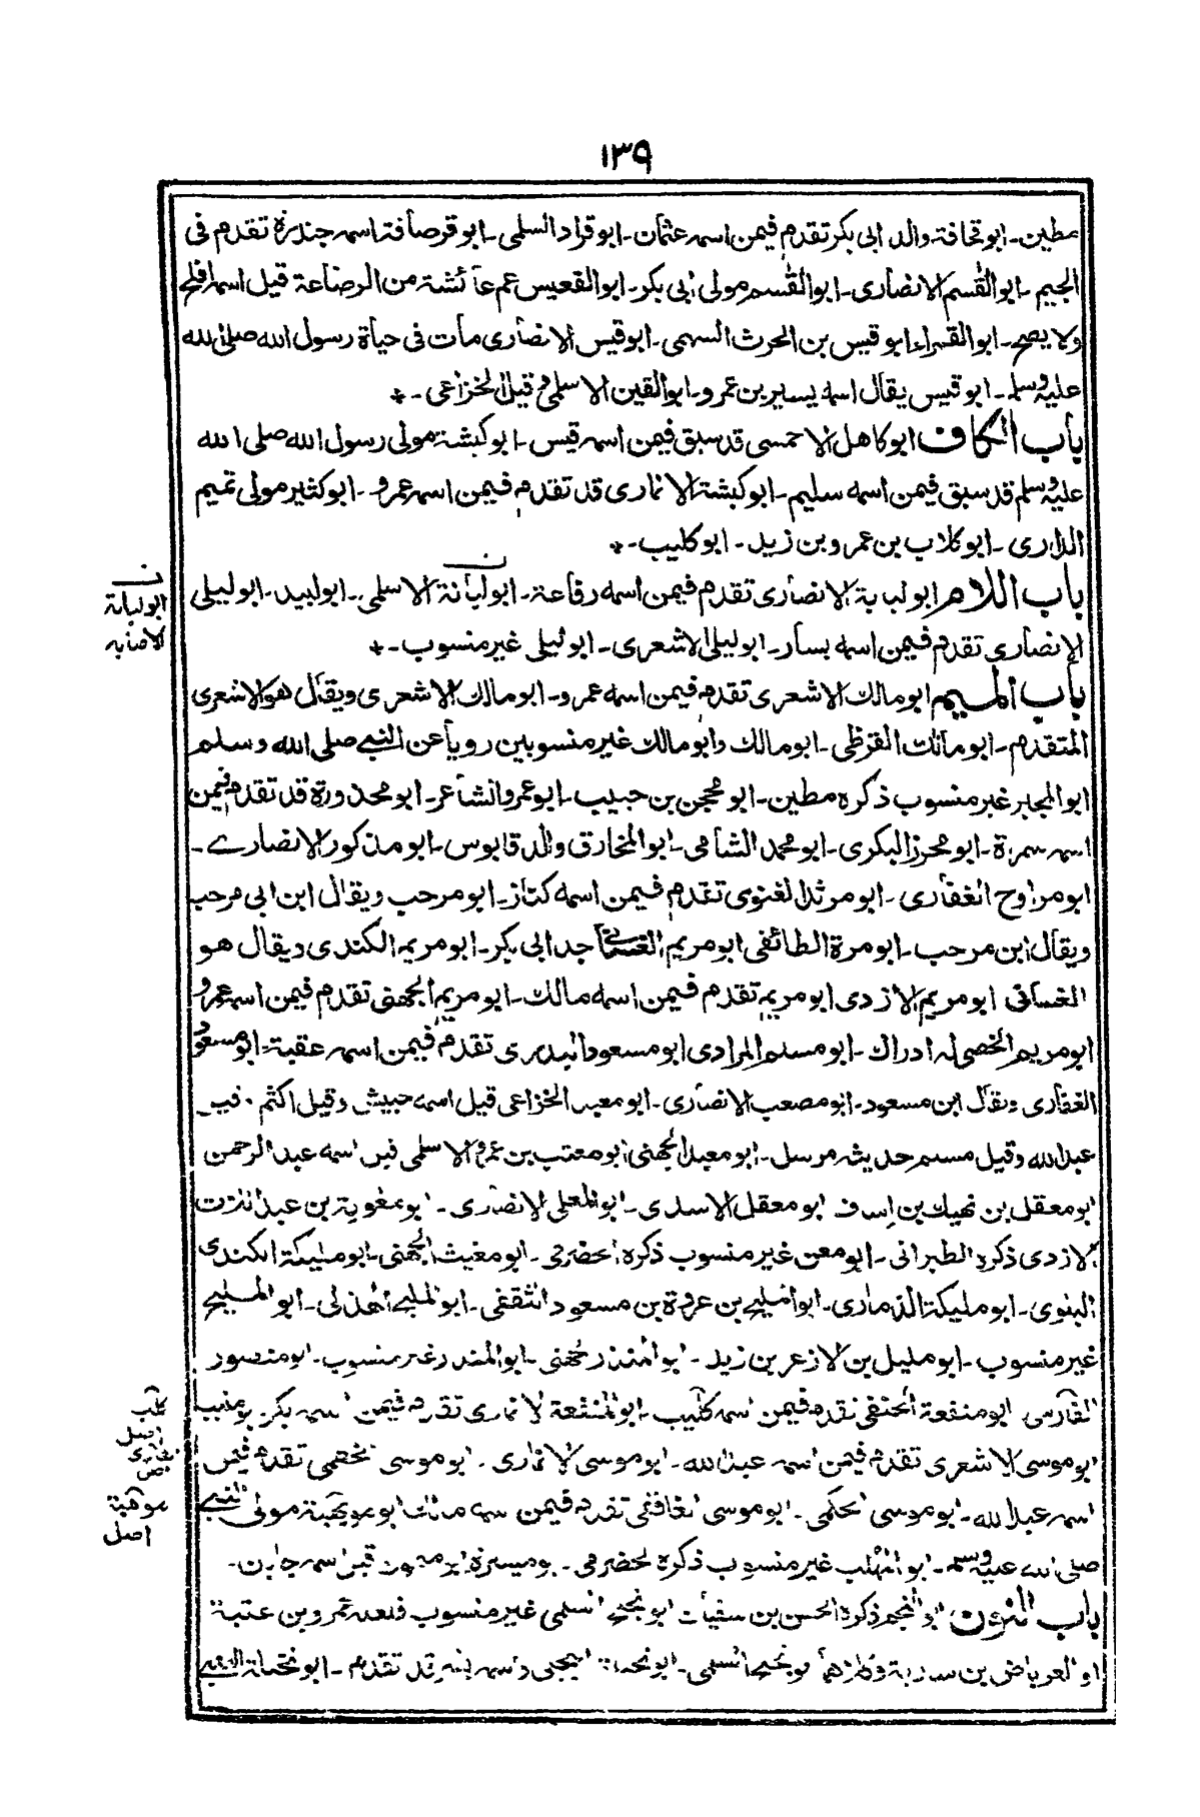 ١٣٩
مطين ـ ابو قحافة والد ابى بكر تقدم فيمن اسمه عثمان ـ ابو قراد السلمى ـ ابو قرصافة اسمه جندرة تقدم فى
الجيم ـ ابو القسم الانصارى ـ ابو القسم مولى ابى بكر ـ ابو القعيس عم عائشة من الرضاعة قيل اسمه افلح
ولا يصح ـ ابو القمراء ابو قيس بن الحرث السهمى ـ ابو قيس الانصارى مات فى حياة رسول الله صلى الله
عليه وسلم ـ ابو قيس يقال اسمه يسير بن عمرو ـ ابو القين الاسلمى وقيل الخزاعى ـ *
باب الكاف ابو كاهل الاحمسى قد سبق فيمن اسمه قيس ـ ابو كبشة مولى رسول الله صلى الله
عليه وسلم قد سبق فيمن اسمه سليم ـ ابو كبشة الانمارى قد تقدم فيمن اسمه عمرو ـ ابو كثير مولى تميم
الدارى ـ ابو كلاب بن عمرو بن زيد ـ ابو كليب ـ *
باب اللام ابو لبابة الانصارى تقدم فيمن اسمه رفاعة ـ ابو لبانة الاسلمى ـ ابو لبيد ـ ابو ليلى
ن
ابو لبابة
الانصارى تقدم فيمن اسمه يسار ـ ابو ليلى الاشعرى ـ ابو ليلى غير منسوب ـ *
باب الميم ابو مالك الاشعرى تقدم فيمن اسمه عمرو ـ ابو مالك الاشعرى ويقال هو الاشعرى
المتقدم ـ ابو مالك القرظى ـ ابو مالك وابو مالك غير منسوبين رويا عن النبى صلى الله وسلم
ابو المجبر غير منسوب ذكره مطين ـ ابو محجن بن حبيب ـ ابو عمرو الشاعر ـ ابو محذورة قد تقدم فيمن
اسمه سمرة ـ ابو محرز البكرى ـ ابو محمد الشامى ـ ابو المخارق والد قابوس ـ ابو مذكور الانصارى ـ
ابو مراوح الغفارى ـ ابو مرثد الغنوى تقدم فيمن اسمه كناز ـ ابو مرحب ويقال ابن ابى مرحب
ويقال ابن مرحب ـ ابو مرة الطائفى ابو مريم الغسانى جد ابى بكر ـ ابو مريم الكندى ويقال هو
الغسانى ابو مريم الازدى ابو مريم تقدم فيمن اسمه مالك ـ ابو مريم الجهنى تقدم فيمن اسمه عمرو
ابو مريم الخصى له ادراك ـ ابو مسلم المرادى ابو مسعود البدرى تقدم فيمن اسمه عقبة ـ ابو مسعود
الغفارى ويقال ابن مسعود ـ ابو مصعب الانصارى ـ ابو معبد الخزاعى قيل اسمه حبيش وقيل اكثم
عبد الله وقيل مسلم حديثه مرسل ـ ابو معبد الجهنى ابو معتب بن عمرو الاسلمى اسمه عبد الرحمن
ابو معقل بن نهيك بن اساف ابو معقل الاسدى ـ ابو المعلى الانصارى ـ ابو معوية بن عبد اللات
الازدى ذكره الطبرانى ـ ابو معن غير منسوب ذكره الحضرمى ـ ابو مغيث الجهنى ـ ابو مليكة الكندى
البنوى ـ ابو مليكة الذمارى ـ ابو المليح بن عروة بن مسعود الثقفى ـ ابو المليح الهذلى ـ ابو المليح
غير منسوب ـ ابو مليل بن الازعر بن زيد ـ ابو المنذر الجهنى ـ ابو المنذر غير منسوب ـ ابو منصور
الفارسى ابو منفعة الحنفى تقدم فيمن اسمه كليب ـ ابو المنقعة الانمارى تقدم فيمن اسمه بكر
كلب
اصل
ابو موسى الاشعرى تقدم فيمن اسمه عبد الله ـ ابو موسى الانمارى ـ ابو موسى تقدم فيمن
اسمه عبد الله ـ ابو موسى الحكمى ـ ابو موسى الغافقى تقدم فيمن اسمه مالك ابو مويهبة مولى النبى
موهبة
اصل
صلى الله عليه وسلم ـ ابو المهلب غير منسوب ذكره الحضرمى ـ ابو ميسرة اسمه جابان ـ
باب النون ابو النجم ذكره الحسن بن سفيان ابو نجيح السلمى غير منسوب فلعله عمرو بن عتبة
او العرباض بن سارية ابو نجيح السلمى ـ البجلى واسمه قد تقدم ـ ابو نخيلة